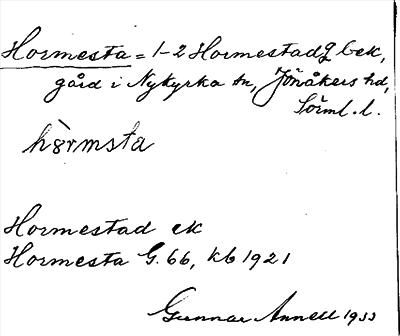 Hormesta = 1-2 Hormestad bek,
gård i Nykyrka sn, Jönåkers hd,
Sörml. l.
hòrmsta
Hormestad ek
Hormesta G. 66, kb 1921
Gunnar Annell 1933